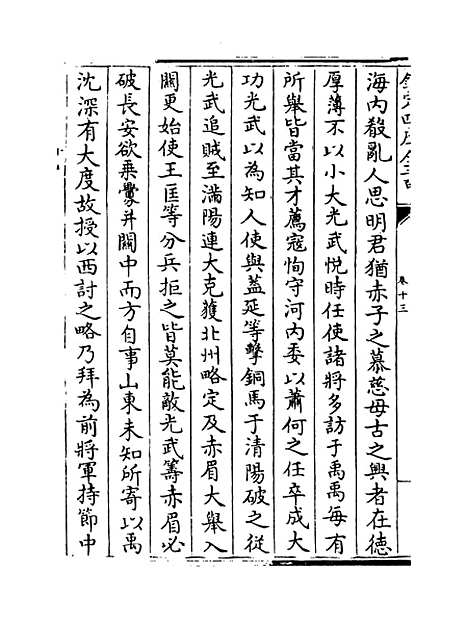 欽定四庫全書
卷十三
海内殽亂人思明君猶赤子之慕慈母古之興者在德
厚薄不以小大光武悦時任使諸將多訪于禹禹每有
所舉皆當其才薦寇恂守河内委以蕭何之任卒成大
功光武以為知人使與蓋延等擊銅馬于清陽破之從
光武追賊至滿陽連大克獲北州略定及赤眉大舉入
關更始使王匡等分兵拒之皆莫能敵光武籌赤眉必
破長安欲乗釁并關中而方自事山東未知所寄以禹
沈深有大度故授以西討之略乃拜為前將軍持節中